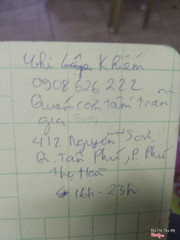 Yhi Gặp Khiếm
0908 626 222
Quán cơm tấm trần
gia
412 Nguyễn Sơn
Q. Tân Phú, P. Phú
Thọ Hoà
16h - 23h